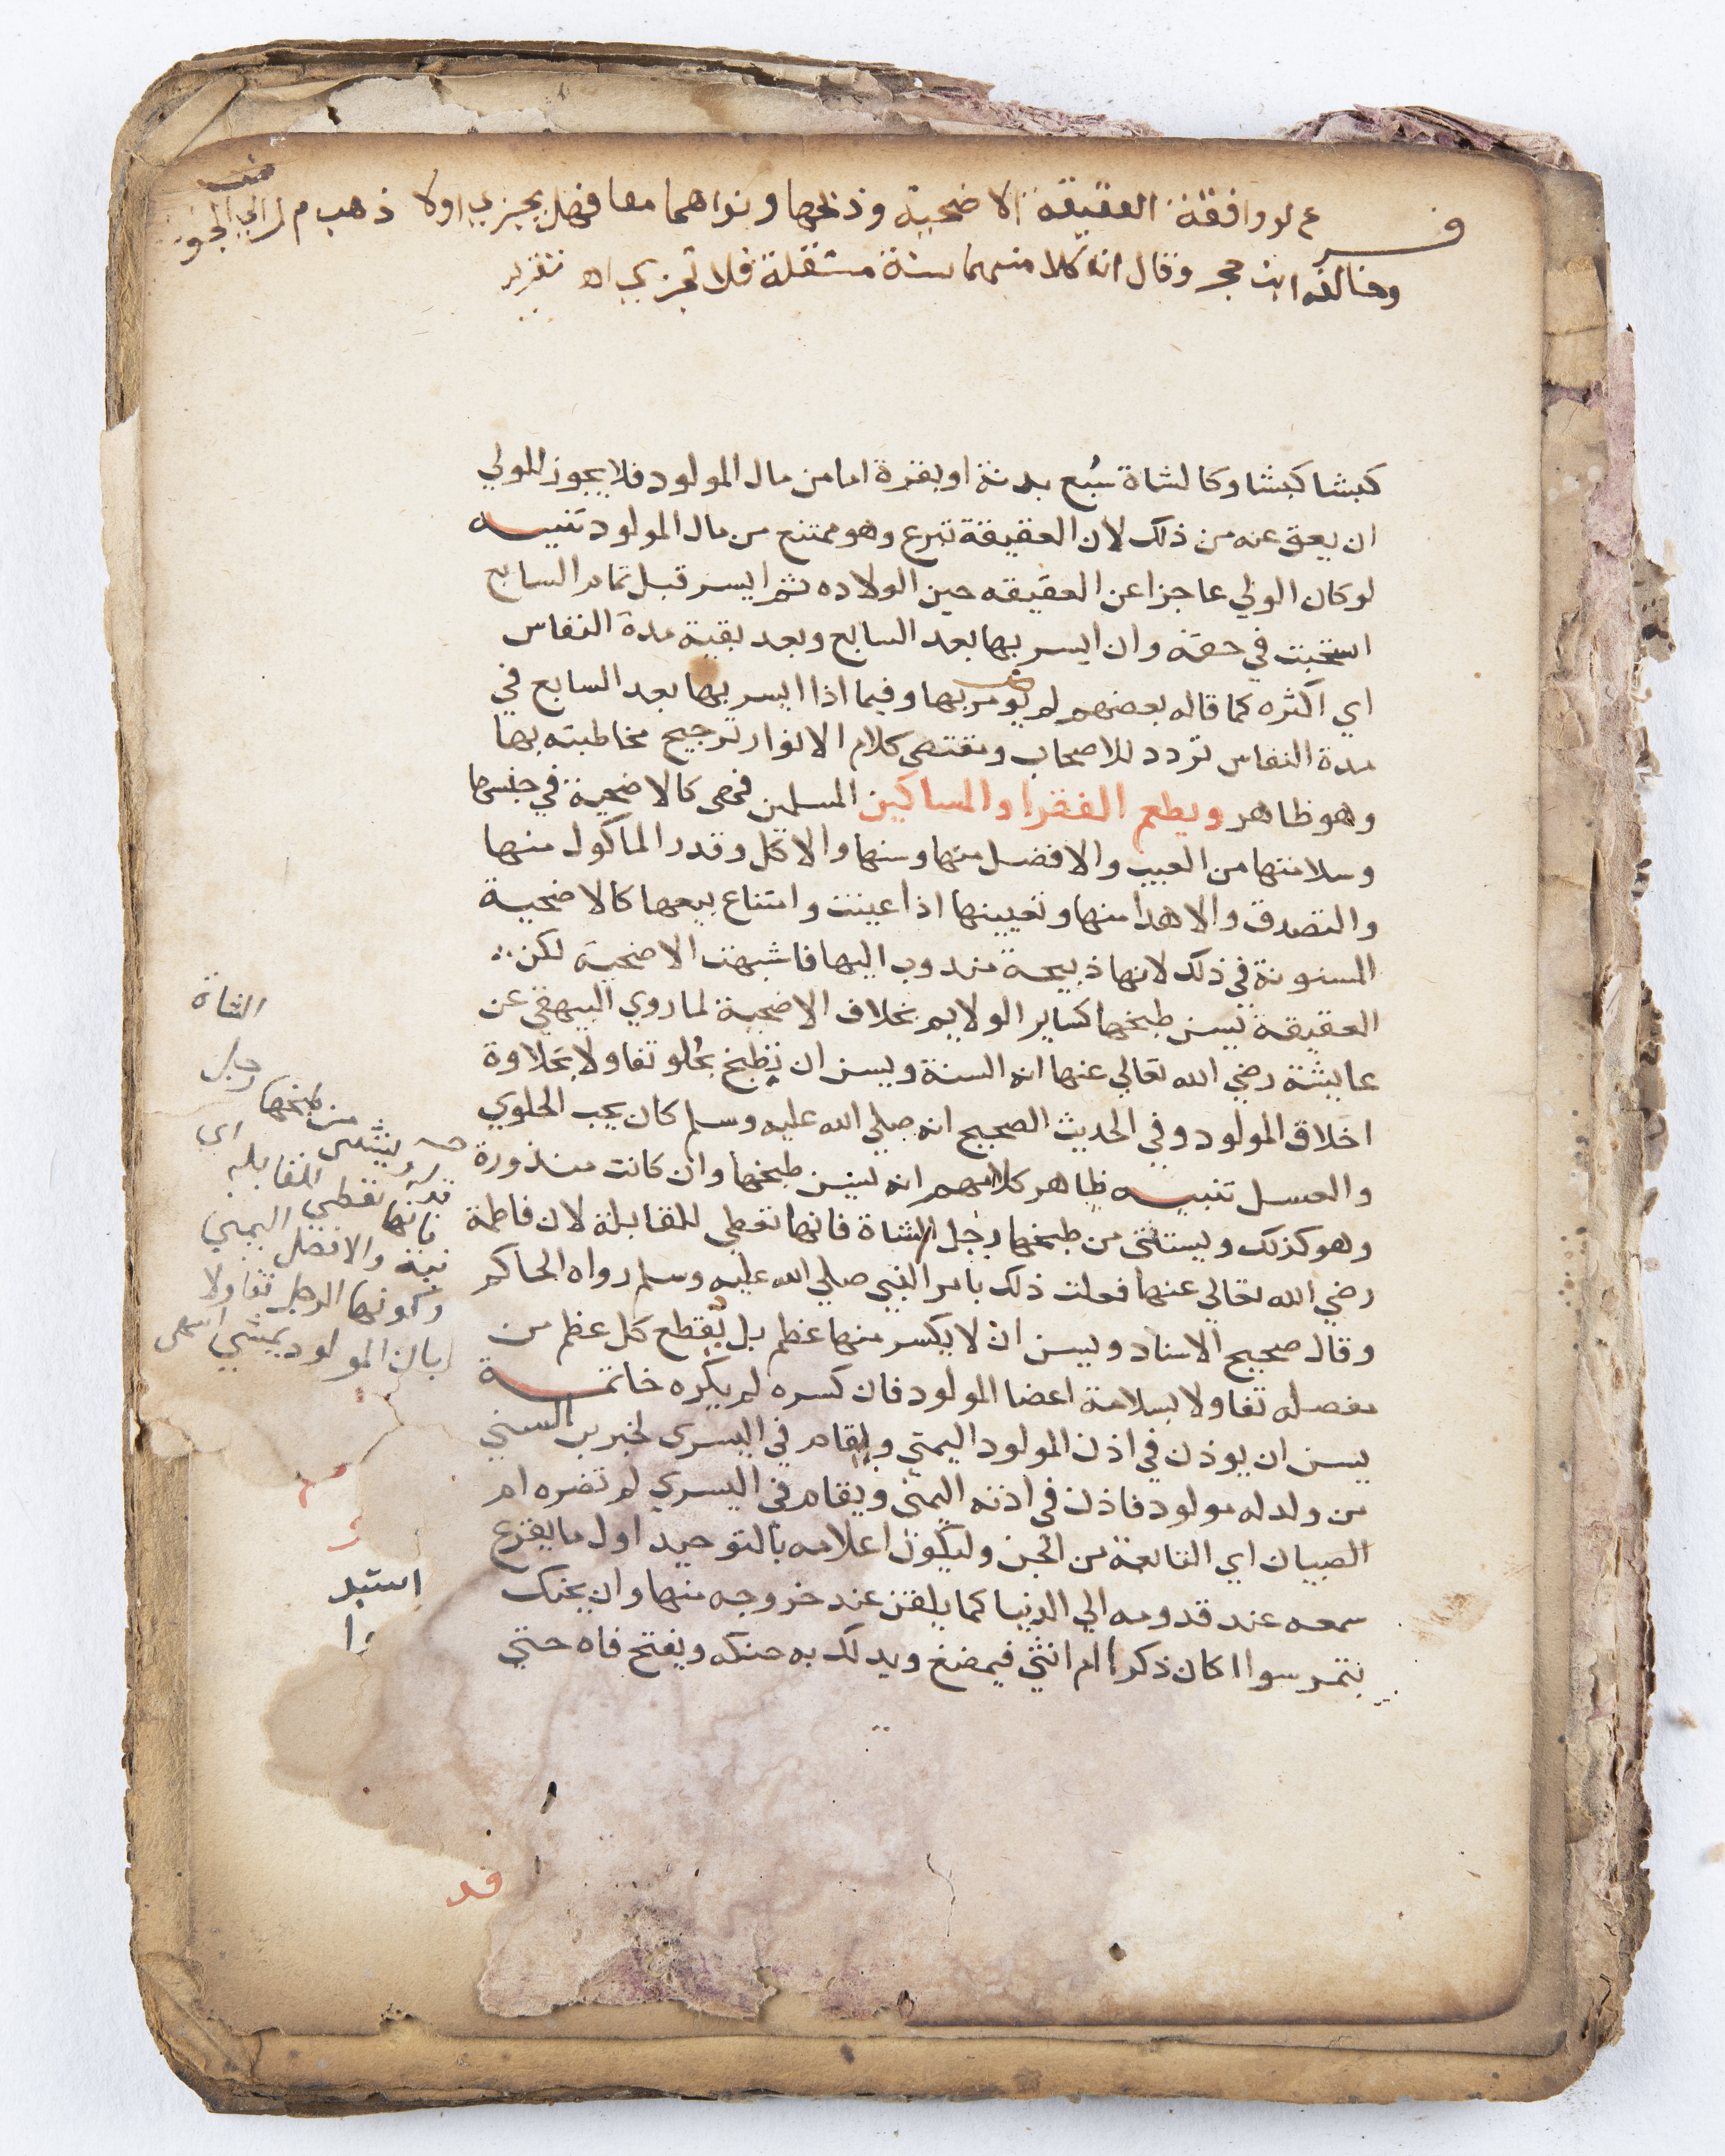 فرع لو وافقة العقيقه الاضحية وذبحها ونواهما معا فهل يجزي اولا ذهب م ر الي
وخالفه ابن حجر وقال ان كلا منهما سنة مستقلة فلا تجزي اه تقرير
كبشا كبشا وكالشاة سُبع بدنة او بقرة اما من مال المولود فلا يجوز للولي
ان يعق عنه من ذلك لان العقيقة تبرع وهو ممتنع من مال المولود تنبيه
لو كان الولي عاجزا عن العقيقه حين الولاده ثم ايسر قبل تمام السابع
استحبت في حقه وان ايسر بها بعد السابع وبعد بقية مدة النفاس
اي اكثره كما قاله بعضهم لم يومر بها وفيما اذا ايسر بها بعد السابع في
مدة النفاس تردد للاصحاب ومقتضي كلام الانوار ترجيح مخاطبته بها
وهو ظاهر ويطعم الفقرا والمساكين المسلمين فهي كالاضحية في جنسها
وسلامتها من العيب والافضل منها وسنها والاكل وقدر الماكول منها
والتصدق والاهدا منها وتعيينها اذا عينت وامتناع بيعها كالاضحية
المسنونة في ذلك لانها ذبيحة مندوب اليها فاشبهت الاضحية لكن
العقيقة يسن طبخها كساير الولايم بخلاف الاضحية لما روي البيهقي عن
عايشة رضي الله تعالي عنها انه السنة ويسن ان تطبخ بحُلو تفاولا بحلاوة
اخلاق المولود وفي الحديث الصحيح انه صلي الله عليه وسلم كان يحب الحلوي
والعسل تنبيه ظاهر كلامهم انه يسن طبخها وان كانت منذورة
وهو كذلك ويستثني من طبخها رجل الشاة فانها تعطي للقابلة لان فاطمة
رضي الله تعالي عنها فعلت ذلك بامر النبي صلي الله عليه وسلم رواه الحاكم
وقال صحيح الاسناد ويسن ان لا يكسر منها عظم بل يقطع كل عظم من
مفصله تفاولا بسلامة اعضا المولود فان كسره لم يكره خاتمة
يسن ان يوذن في اذن المولود اليمني ويقام في اليسري لخبر بن السني
من ولد له مولود فاذن في اذنه اليمني ويقام في اليسري لم تضره ام
الصبيان اي التابعة من الجن وليكون اعلامه بالتوحيد اول ما يقرع
سمعه عند قدومه الي الدنيا كما يلقن عند خروجه منها وان يحنك
بتمر سوا اكان ذكرا ام انثي فيمضغ ويدلك به حنكه ويفتح فاه حتي
الشاة
رجل
من طبخها
ويستثني
اي
فانها تعطي للقابله
نية والافضل اليمني
وكونها الرجل تفاولا
بان المولود يمشي انتهي
قد